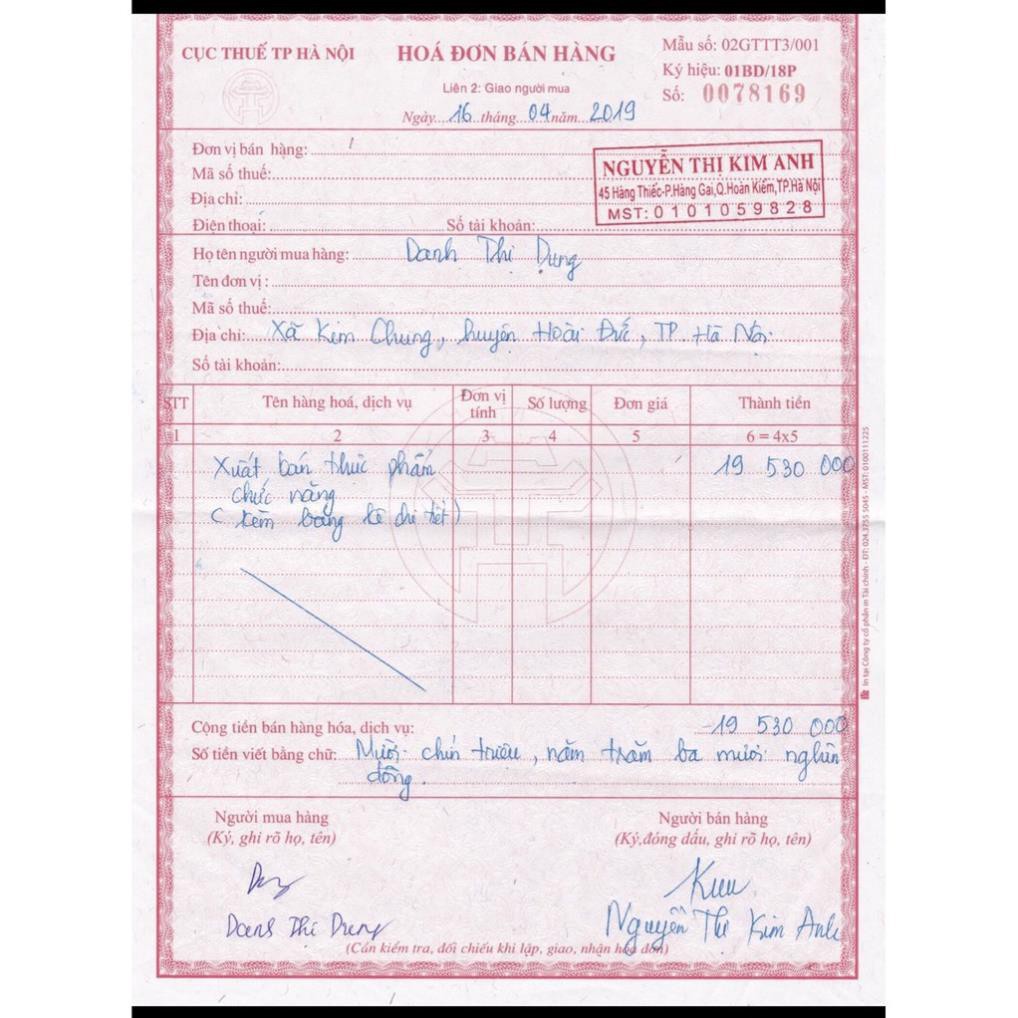 CỤC THUẾ TP HÀ NỘI
HOÁ ĐƠN BÁN HÀNG
Liên 2: Giao người mua
Ngày...16...tháng...04...năm...2019
Mẫu số: 02GTTT3/001
Ký hiệu: 01BD/18P
Số: 0078169
Đơn vị bán hàng:
Mã số thuế:
Địa chỉ:
Điện thoại: Số tài khoản:
NGUYỄN THỊ KIM ANH
45 Hàng Thiếc-P.Hàng Gai,Q.Hoàn Kiếm,TP.Hà Nội
MST: 0101059828
Họ tên người mua hàng: Danh Thị Dung
Tên đơn vị:
Mã số thuế:
Địa chỉ: Xã Kim Chung, huyện Hoài Đức, TP. Hà Nội
Số tài khoản:
STT Tên hàng hoá, dịch vụ Đơn vị tính Số lượng Đơn giá Thành tiền
1 2 3 4 5 6 = 4x5
Xuất bán thực phẩm 19 530 000
chức năng
( kèm bảng kê chi tiết )
Cộng tiền bán hàng hóa, dịch vụ: 19 530 000
Số tiền viết bằng chữ: Mười chín triệu, năm trăm ba mươi nghìn
đồng.
Người mua hàng
(Ký, ghi rõ họ, tên)
Danh Thị Dung
Người bán hàng
(Ký,đóng dấu, ghi rõ họ, tên)
Nguyễn Thị Kim Anh
(Cần kiểm tra, đối chiếu khi lập, giao, nhận hóa đơn)
In tại Công ty cổ phần in Tài chính - ĐT: 024.3755 5045 - MST: 0100111225